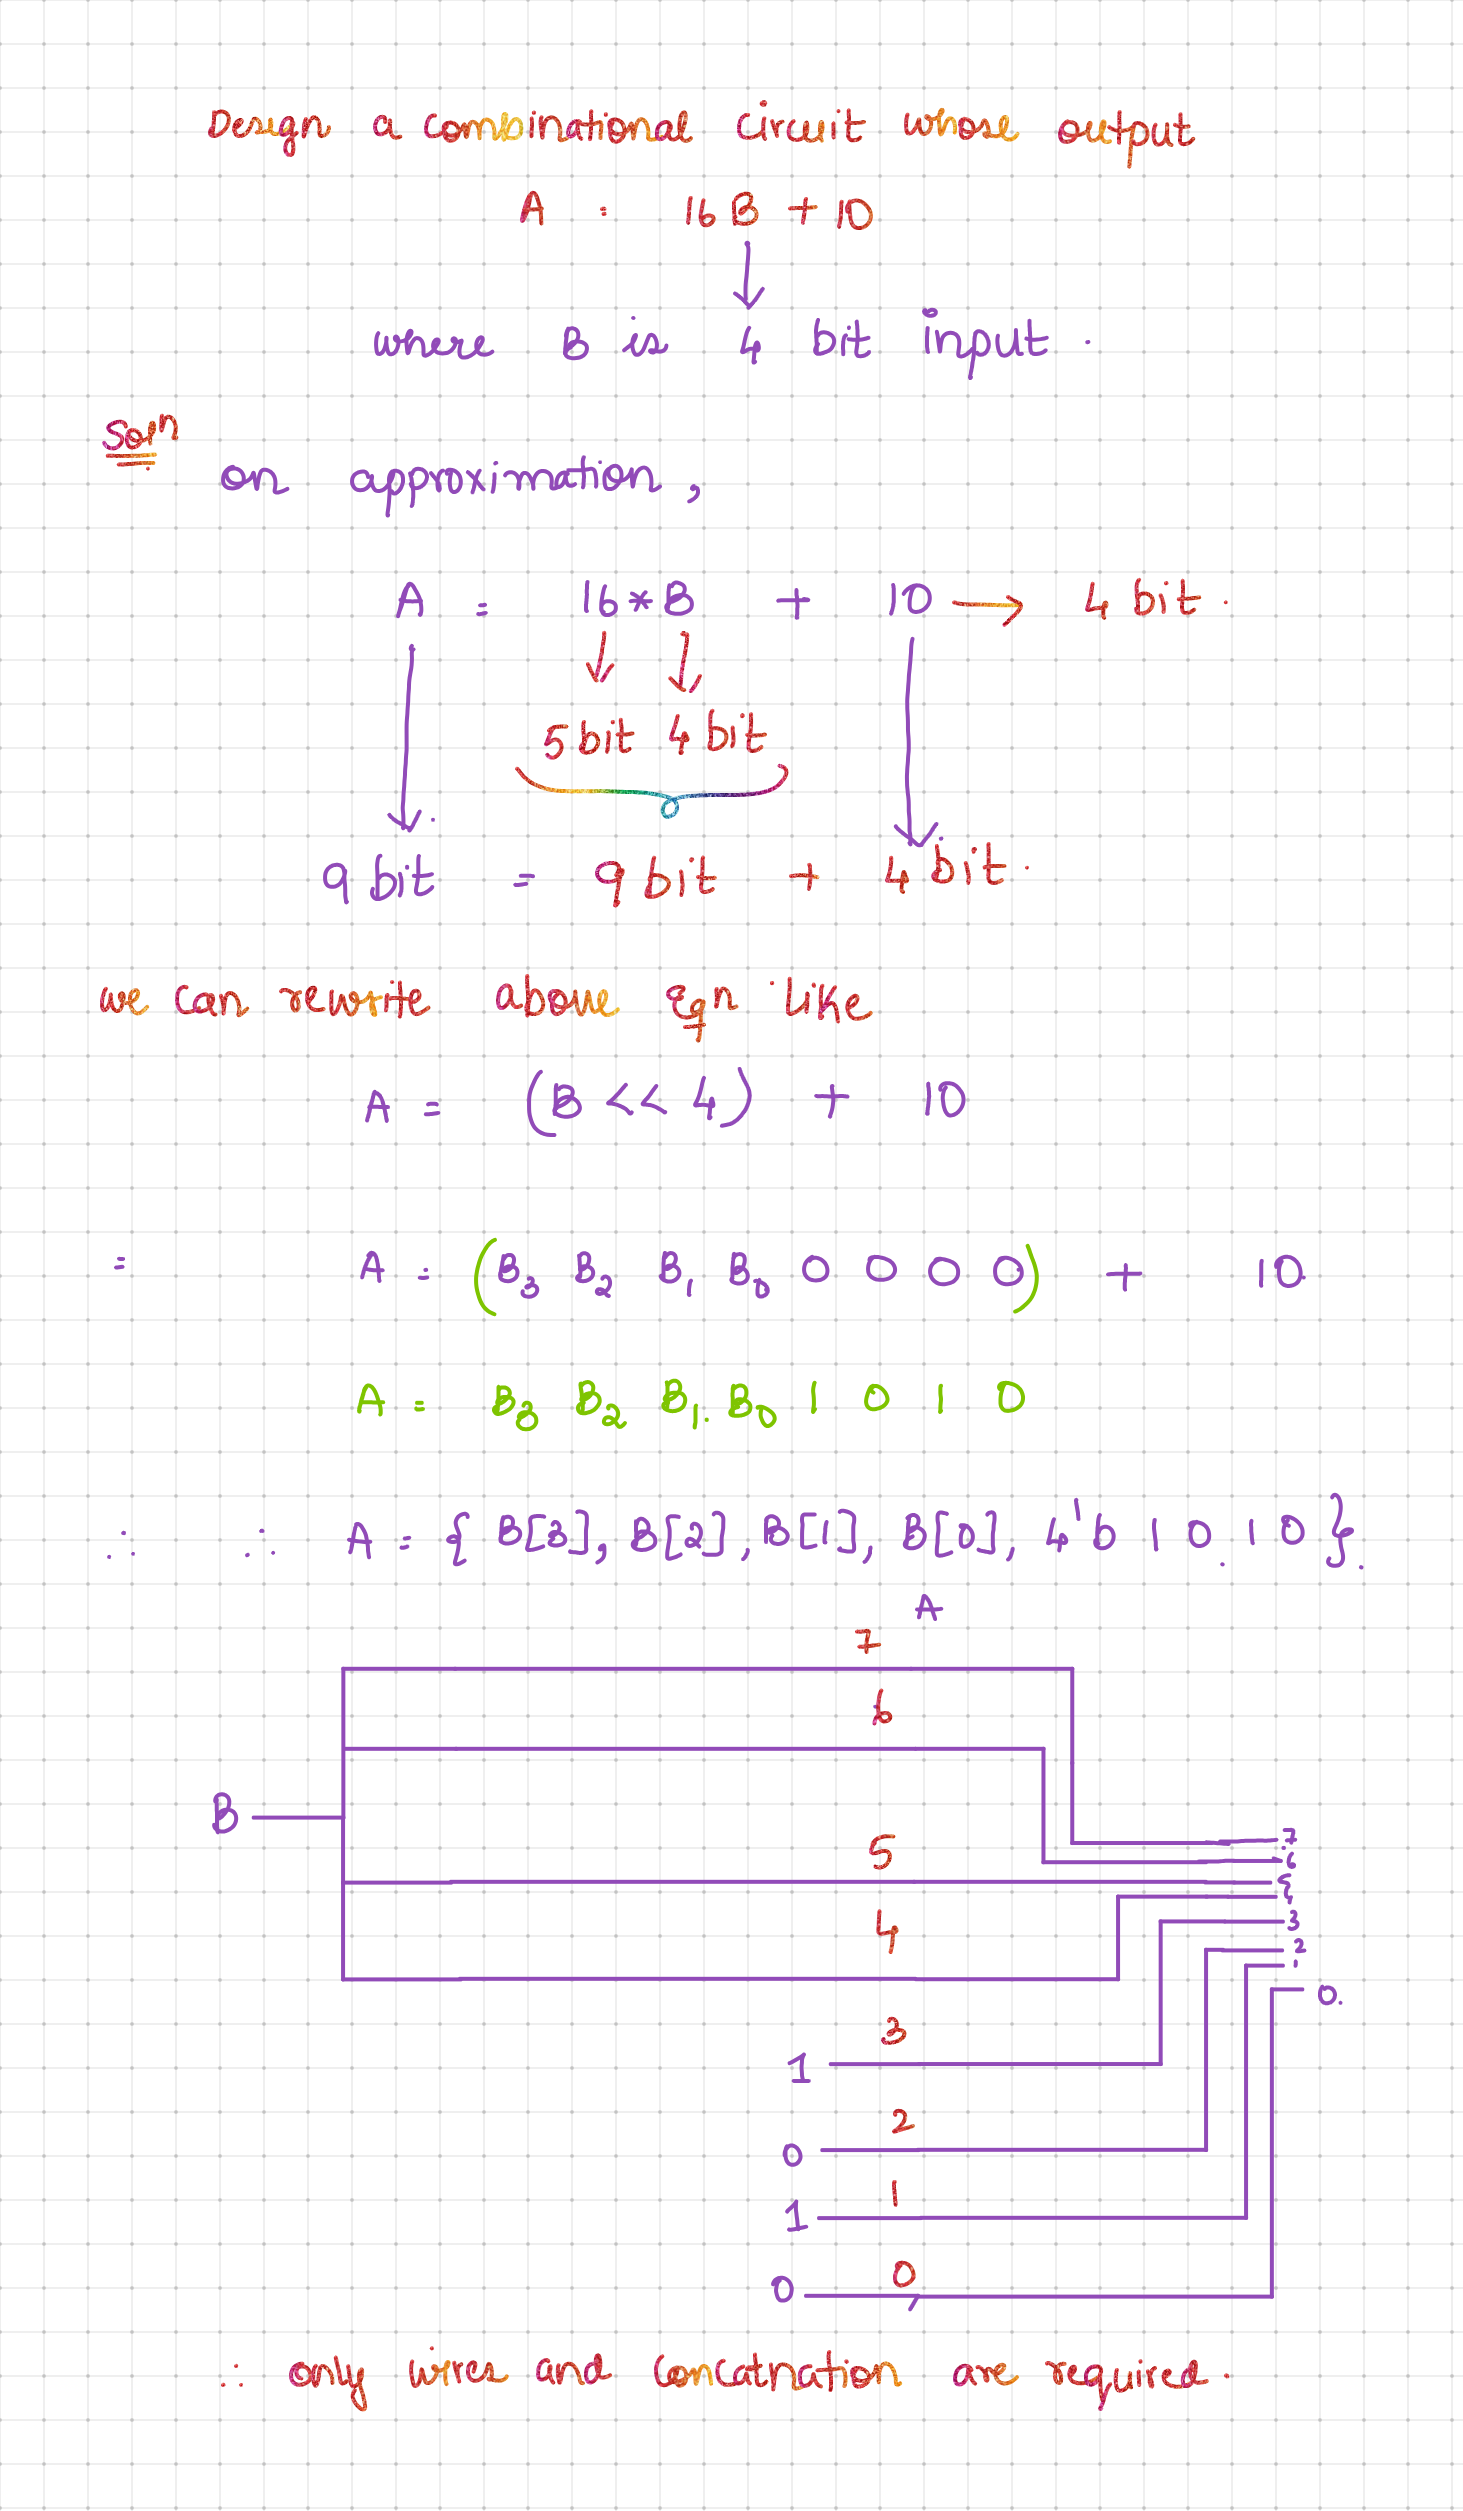 Design a combinational circuit whose output
A = 16 B + 10
where B is 4 bit input.
Soln
on approximation,
A = 16 * B + 10 → 4 bit.
5 bit 4 bit
9 bit = 9 bit + 4 bit.
we can rewrite above Eqn like
A = (B << 4) + 10
= A = (B3 B2 B1 B0 0 0 0 0) + 10
A = B3 B2 B1 B0 1 0 1 0
∴ ∴ A = { B[3], B[2], B[1], B[0], 4'b 1 0 1 0 }.
A
7
6
B
5
7
6
5
4
4
3
2
1
0.
3
1
2
0
1
1
0
0
∴ only wires and concatnation are required.